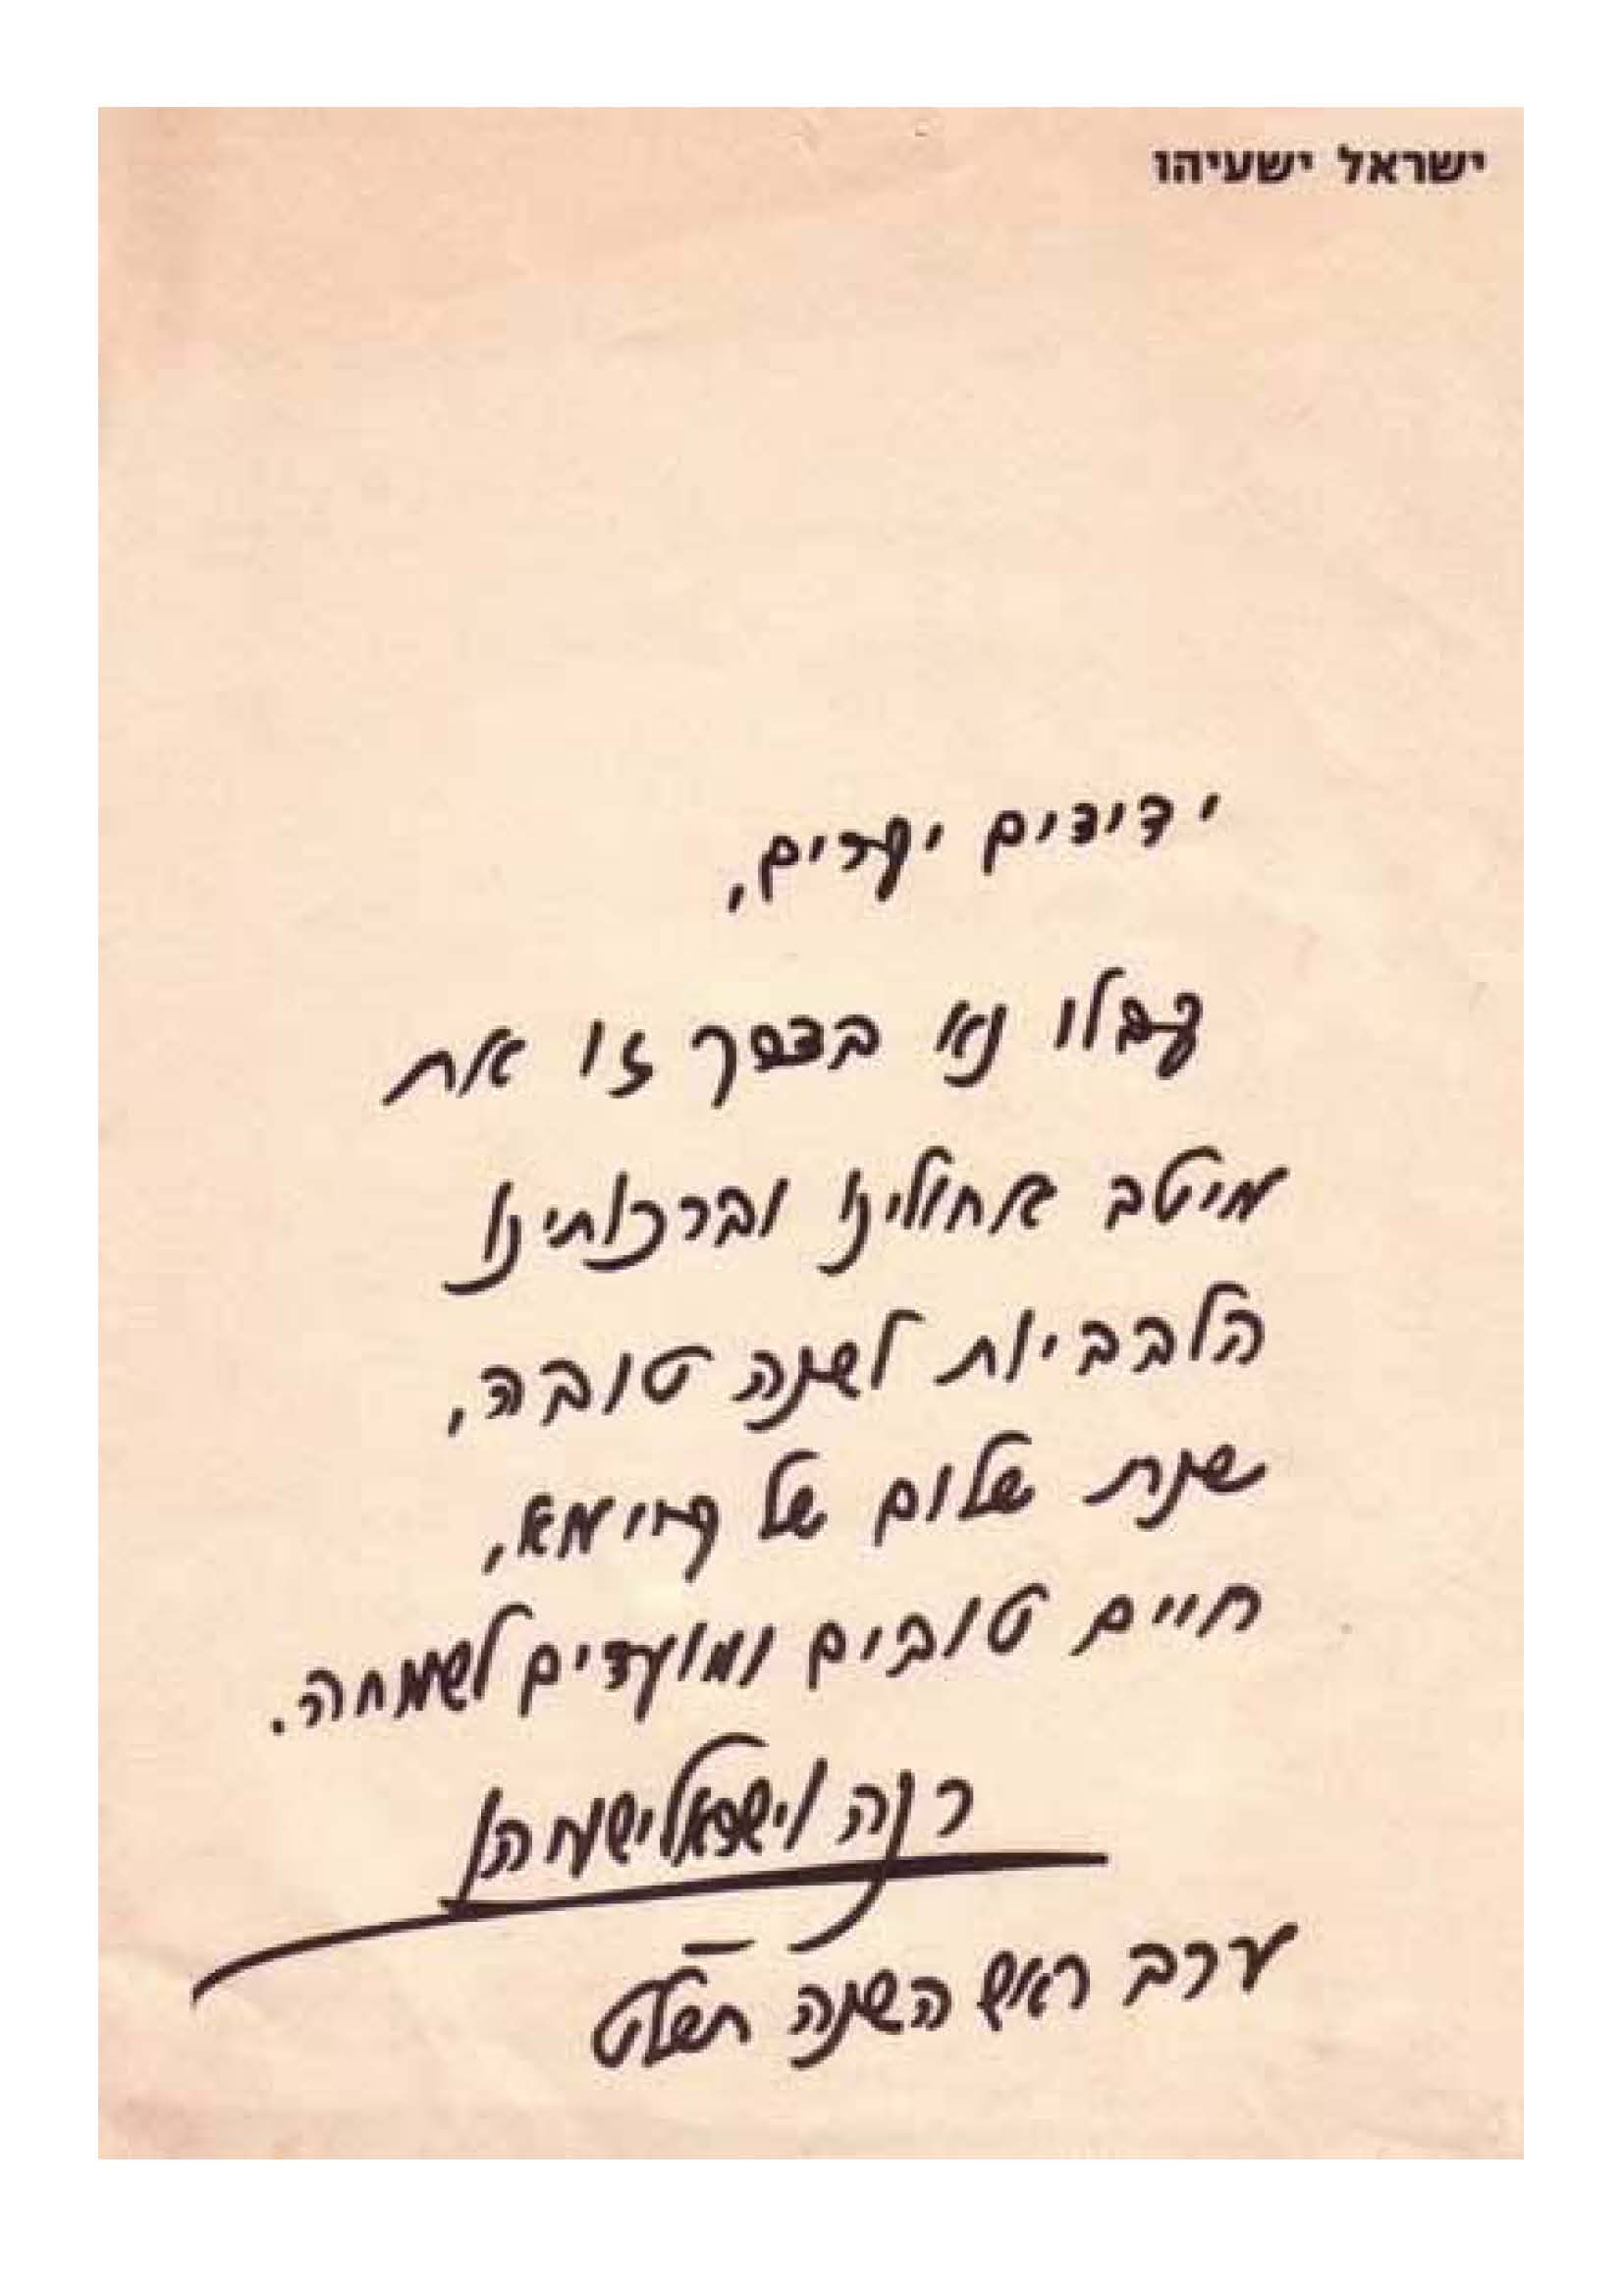 ישראל ישעיהו
ידידים יקרים,
קבלו נא בדרך זו את
מיטב אחולינו וברכותינו
הלבביות לשנה טובה,
שנת שלום של קיימא,
חיים טובים ומועדים לשמחה.
רנה וישראל ישעיהו
ערב ראש השנה תשל״ט